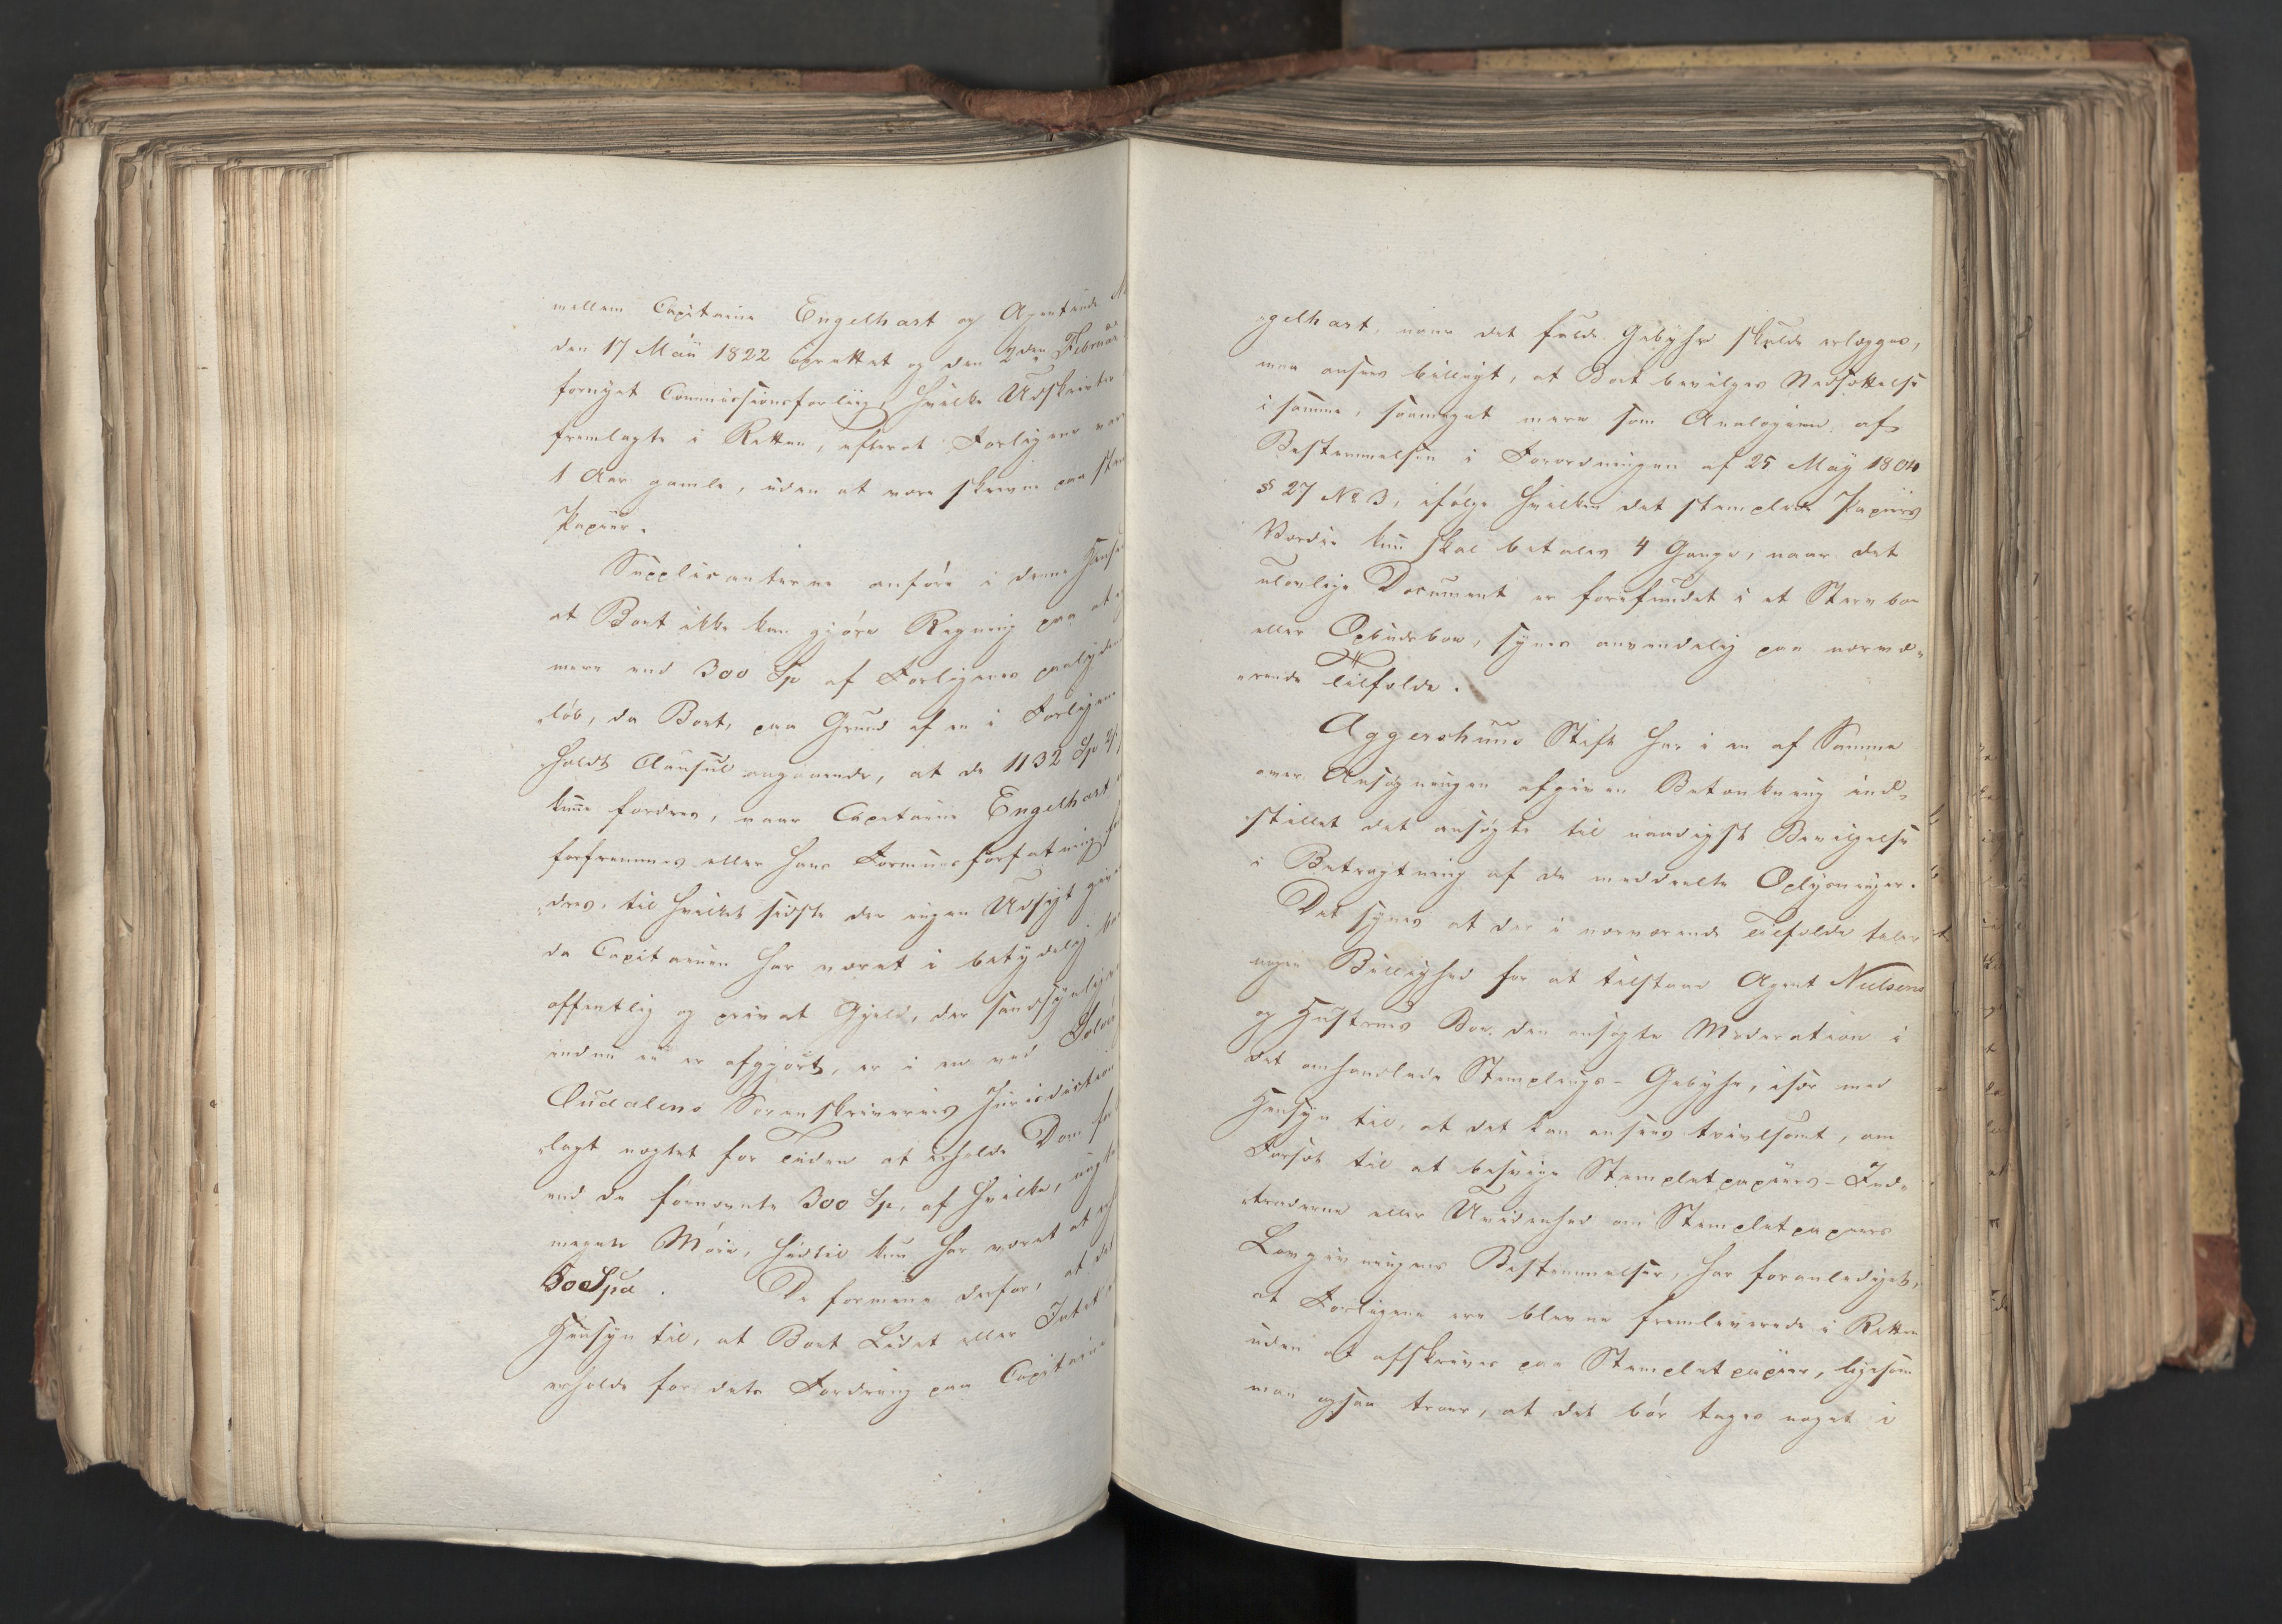 mellem Capitaine Engelhart og Agentinde
den 17 Mäÿ 1822 oprettet og den 2den Februar
fornyet Commissionsforliig, hvilke Udskrivter
fremlagte i Retten, efterat Forligene var
1 Aar gamle, uden at være skrevne paa
Papiir.
Supplicanterne anføre i denne
at Boet ikke kan gjøre Regning paa at
mere end 300 Sp af Forligenes paalydende
løb, da Boet, paa Grund af en i Forligene
holdt Clausul angaaende, at de 1132 Sp
kunne fordres, naar Capitaine Engelhart
forfremmes eller hans Formuesforfatning
dres, til hvilket sidste der ingen Udsigt
da Capitainen har været i betydelig
offentlig og privat Gjeld, der sandsynligen
endnu ei er afgjort, er i en ved Solør
Oudalens Sorenskriveries Jurisdiction
lagt nægtet for Tiden at erholde Dom for
end de fornævnte 300 Sp. af hvilke,
megen Møie, hidtil kun har været at
50 Spd. De formene derfor, at det
Hensyn til, at Boet Lidet eller Intet
erholde for dets Fordring paa Capitaine
gelhart, naar det fulde Gebyhr skulde erlægges,
maa ansees billigt, at Boet bevilges Nedsættelse
i samme, saameget mere som Analogien af
Bestemmelsen i Forordningen af 25 May 1804
§ 27 No 3, ifølge hvilken det stemplede Papiirs
Værdie kun skal betales 4 Gange, naar det
ulovlige Document er forefundet i et Stervboe
eller Opbudsboe, synes anvendelig paa nærvæ-
rende Tilfælde.
Aggershuus Stift har i en af Samme
over Ansøgningen afgiven Betænkning ind-
stillet det ansøgte til naadigst Bevilgelse
i Betragtning af de meddeelte Oplysninger.
Det synes at der i nærværende Tilfælde taler
nogen Billighed for at tilstaae Agent Nielsens
og Hustrues Boe den ansøgte Moderation i
det omhandlede Stemplings-Gebyhr, især med
Hensyn til, at det kan ansees tvivlsomt, om
Forsøk til at besvige Stempletpapiirs-Ind-
traderne eller Uvidenhed om Stempletpapiirs
Lovgivningens Bestemmelser, har foranlediget,
at Forligene ere blevne fremleverede i Retten
uden at afskrives paa Stempletpapiir, ligesom
man ogsaa troer, at det bør tages noget i